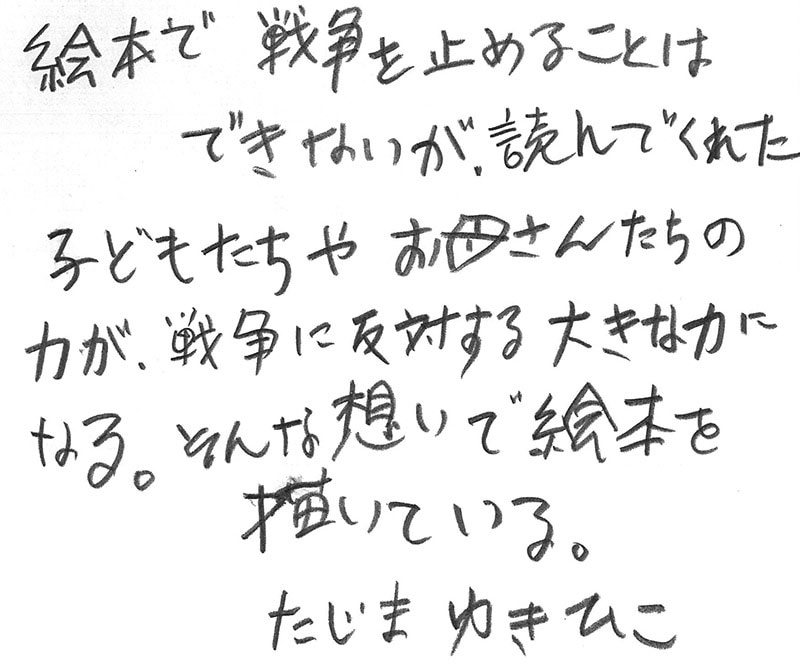 絵本で 戦争を止めることは
できないが、読んでくれた
子どもたちや お母さんたちの
力が、戦争に反対する大きな力に
なる。そんな想いで絵本を
描いている。
たじま ゆきひこ